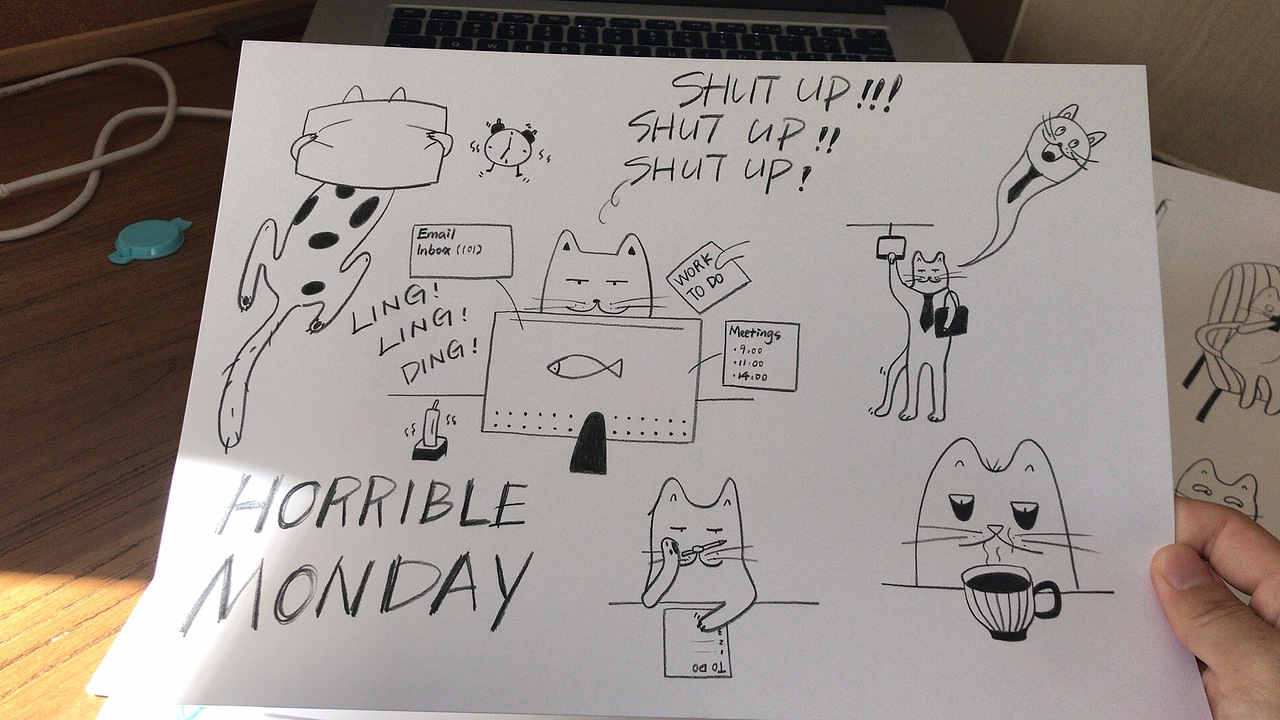 SHUT UP!!!
SHUT UP!!
SHUT UP!
Email
Inbox (101)
WORK
TO DO
LING!
LING!
DING!
Meetings
· 9:00
· 11:00
· 14:00
HORRIBLE
MONDAY
TO DO
1
2